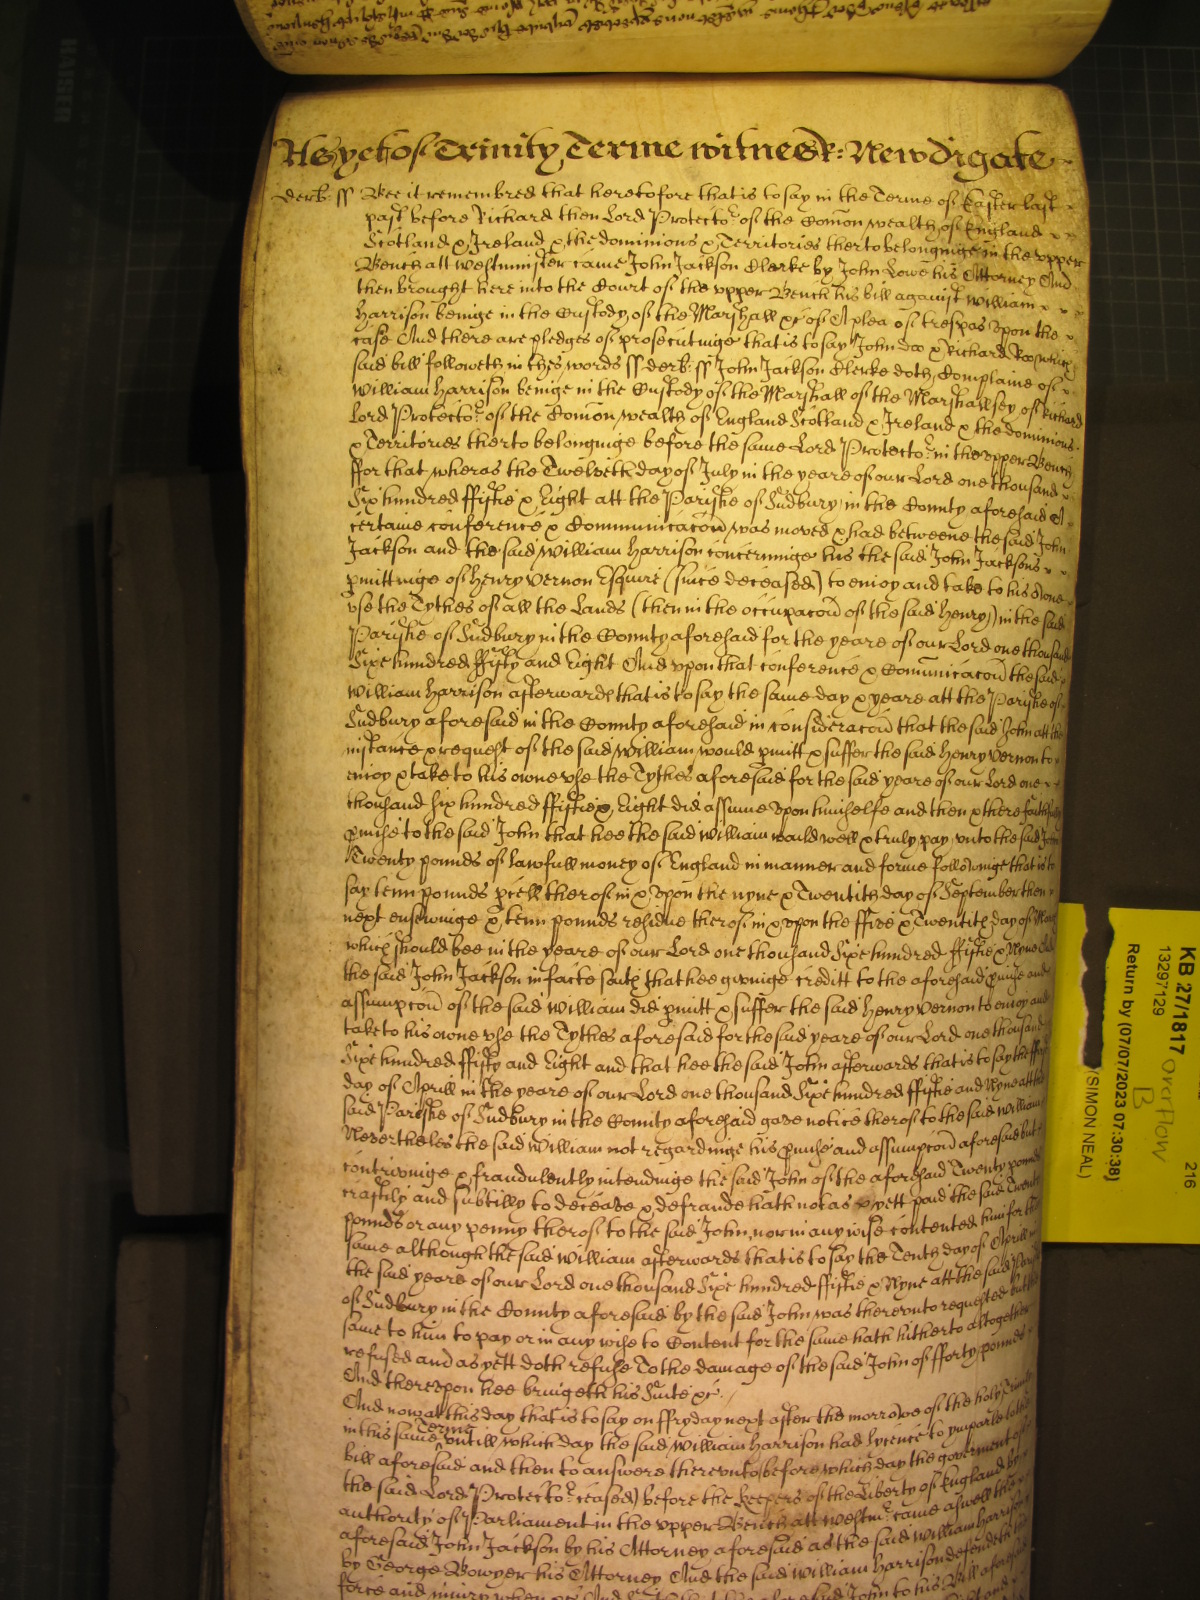 As yet of Trinity Terme witnes R: Newdigate
derb: ss Bee it remembred that heretofore that is to say in the Terme of Easter last
past before Richard then Lord Protector of the Comon wealth of England
Scotland & Ireland & the dominions & Territories therto belonginge in the upper
Bench att westminster came John Jackson Clerke by John Lowe his Attorney And
then brought here into the Court of the upper Bench his bill against william
Harrison beinge in the Custody of the Marshall &c of A plea of trespas upon the
case And there are pledges of prosecutinge that is to say John doo & Richard Roo which
said bill followeth in thes words ss derb: ss John Jackson Clerke doth Complaine of
William Harrison beinge in the Custody of the Marshall of the Marshallsey of Richard
Lord Protector of the Comon wealth of England Scotland & Ireland & the dominions
& Territories therto belonginge before the same Lord Protector in the upper Bench
ffor that wheras the Twelveth day of July in the yeare of our Lord one thousand
Six hundred ffiftie & Eight att the Parishe of Sudbury in the County aforesaid A
certaine conference & Communicacon was moved & had betweene the said John
Jackson and the said William Harrison concerninge his the said John Jacksons
pmittinge of Henry Vernon Esquire (since deceased) to enioy and take to his owne
use the Tythes of all the Lands (then in the occupacon of the said Henry) in the said
Parishe of Sudbury in the County aforesaid for the yeare of our Lord one thousand
Sixe hundred ffifty and Eight And upon that conference & Comunicacon the said
William Harrison afterwards that is to say the same day & yeare att the Parishe of
Sudbury aforesaid in the County aforesaid in consideracon that the said John att the
instance & request of the said William would pmitt & suffer the said Henry Vernon to
enioy & take to his owne use the Tythes aforesaid for the said yeare of our Lord one
thousand six hundred ffiftie & Eight did assume upon himselfe and then & there faithfully
pmise to the said John that hee the said William would well & truly pay unto the said John
Twenty pounds of lawfull money of England in manner and forme followinge that is to
say tenn pounds pcell therof in & upon the nyne & Twentith day of September then
next ensewinge & tenn pounds residue therof in & upon the ffive & Twentith day of March
which should bee in the yeare of our Lord one thousand Sixe hundred ffiftie & Nyne And
the said John Jackson in facte saith that hee givinge creditt to the aforesaid pmise and
assumpcon of the said William did pmitt & suffer the said Henry Vernon to enioy and
take to his owne use the Tythes aforesaid for the said yeare of our Lord one thousand
Sixe hundred ffifty and Eight and that hee the said John afterwards that is to say the
day of Aprill in the yeare of our Lord one thousand Sixe hundred ffiftie and Nyne att the
said Parishe of Sudbury in the County aforesaid gave notice therof to the said William
Neverthelesse the said William not regardinge his pmise and assumpcon aforesaid but
contrivinge & fraudulently intendinge the said John of the aforesaid Twenty pounds
craftily and subtilly to deceave & defraude hath not as yett paid the said Twenty
pounds or any penny therof to the said John nor in any wise contented him for the
same although the said William afterwards that is to say the Tenth day of Aprill in
the said yeare of our Lord one thousand Sixe hundred ffiftie & Nyne att the said Parishe
of Sudbury in the County aforesaid by the said John was therunto requested but the
same to him to pay or in any wise to Content for the same hath hitherto altogether
refused and as yett doth refuse To the damage of the said John of fforty pounds
And thereupon hee bringeth his Suite &c.
And now att this day that is to say on ffryday next after the morrowe of the holy Trinity
in this same Terme untill which day the said William Harrison had lycence to ymparle to the
bill aforesaid and then to answere therunto (before which day the goverment of
the said Lord Protector ceased) before the Keepers of the Liberty of England by
authority of Parliament in the upper Bench att Westmr came aswell the
aforesaid John Jackson by his Attorney aforesaid as the said William Harrison
by George Bowyer his Attorney And the said William Harrison defendeth the
force and iniury when &c And
KB 27/1817
13297129
overflow
B
216
Return by (07/07/2023 07:30:38)
(SIMON NEAL)
KAISER